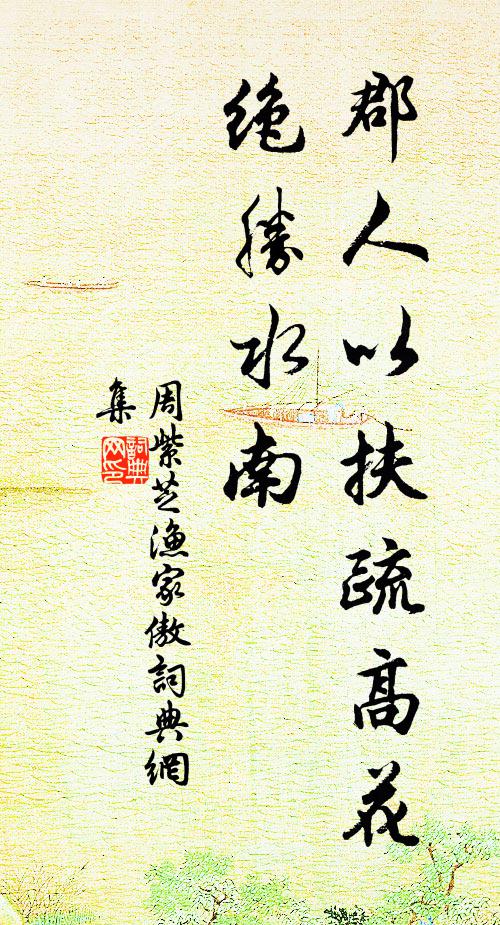 郡人以扶疏高花
絶勝水南
周紫芝漁家傲詞典網
集
詞典
网印